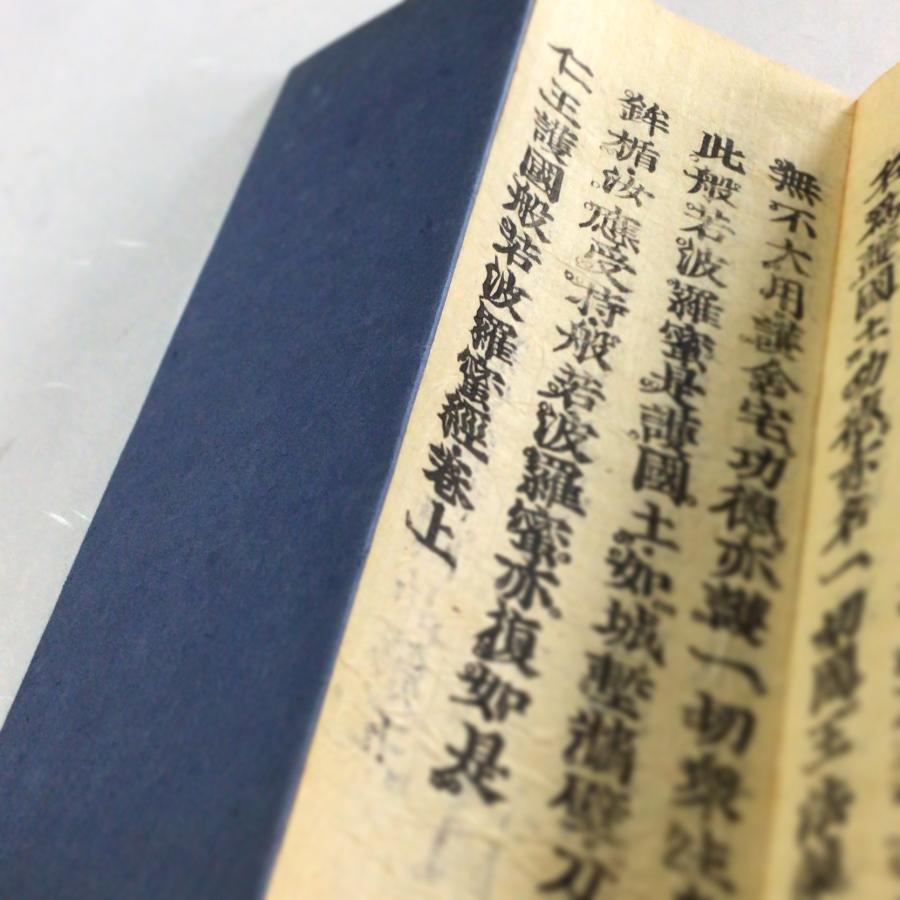 名為護國土功德亦名一切國王法藥
無不大用護舍宅功德亦護一切衆生
此般若波羅蜜是護國土如城塹墻壁刀
鉾楯汝應受持般若波羅蜜亦復如是
仁王護國般若波羅蜜經卷上